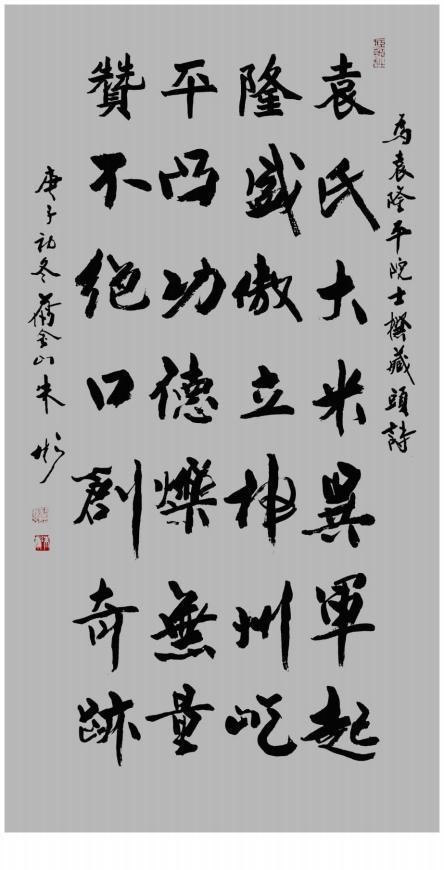 為袁隆平院士撰藏頭詩
袁氏大米異軍起
隆盛傲立神州屹
平凸功德爍無量
贊不絕口創奇跡
庚子初冬舊金山朱彬